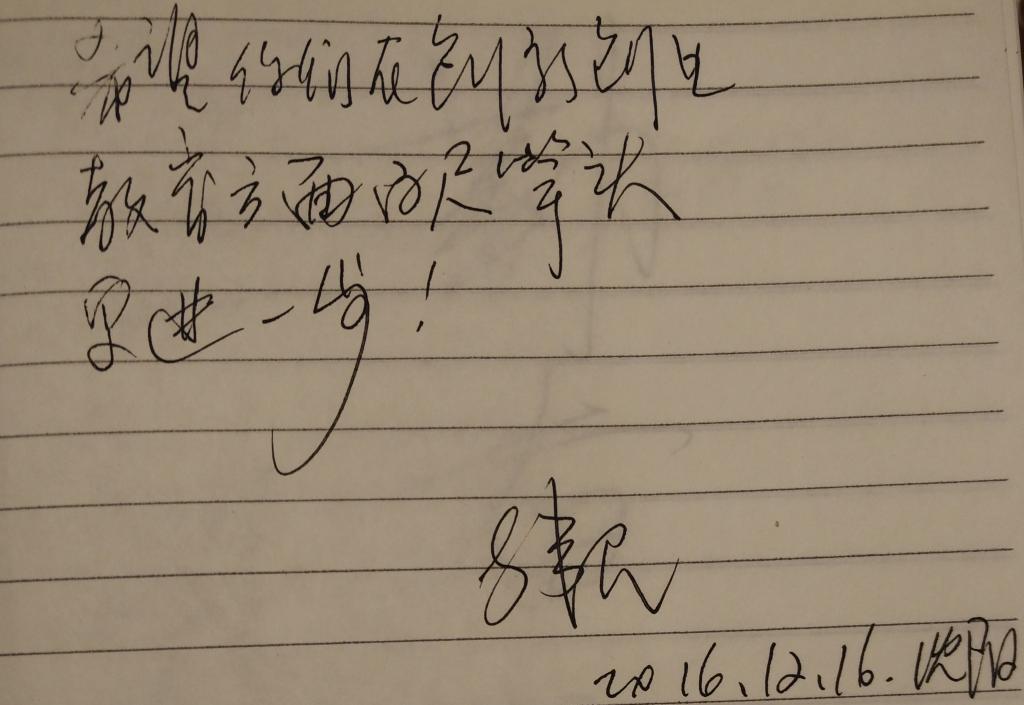 希望你们在创新创业
教育方面百尺竿头
更进一步！
2016.12.16.沈阳